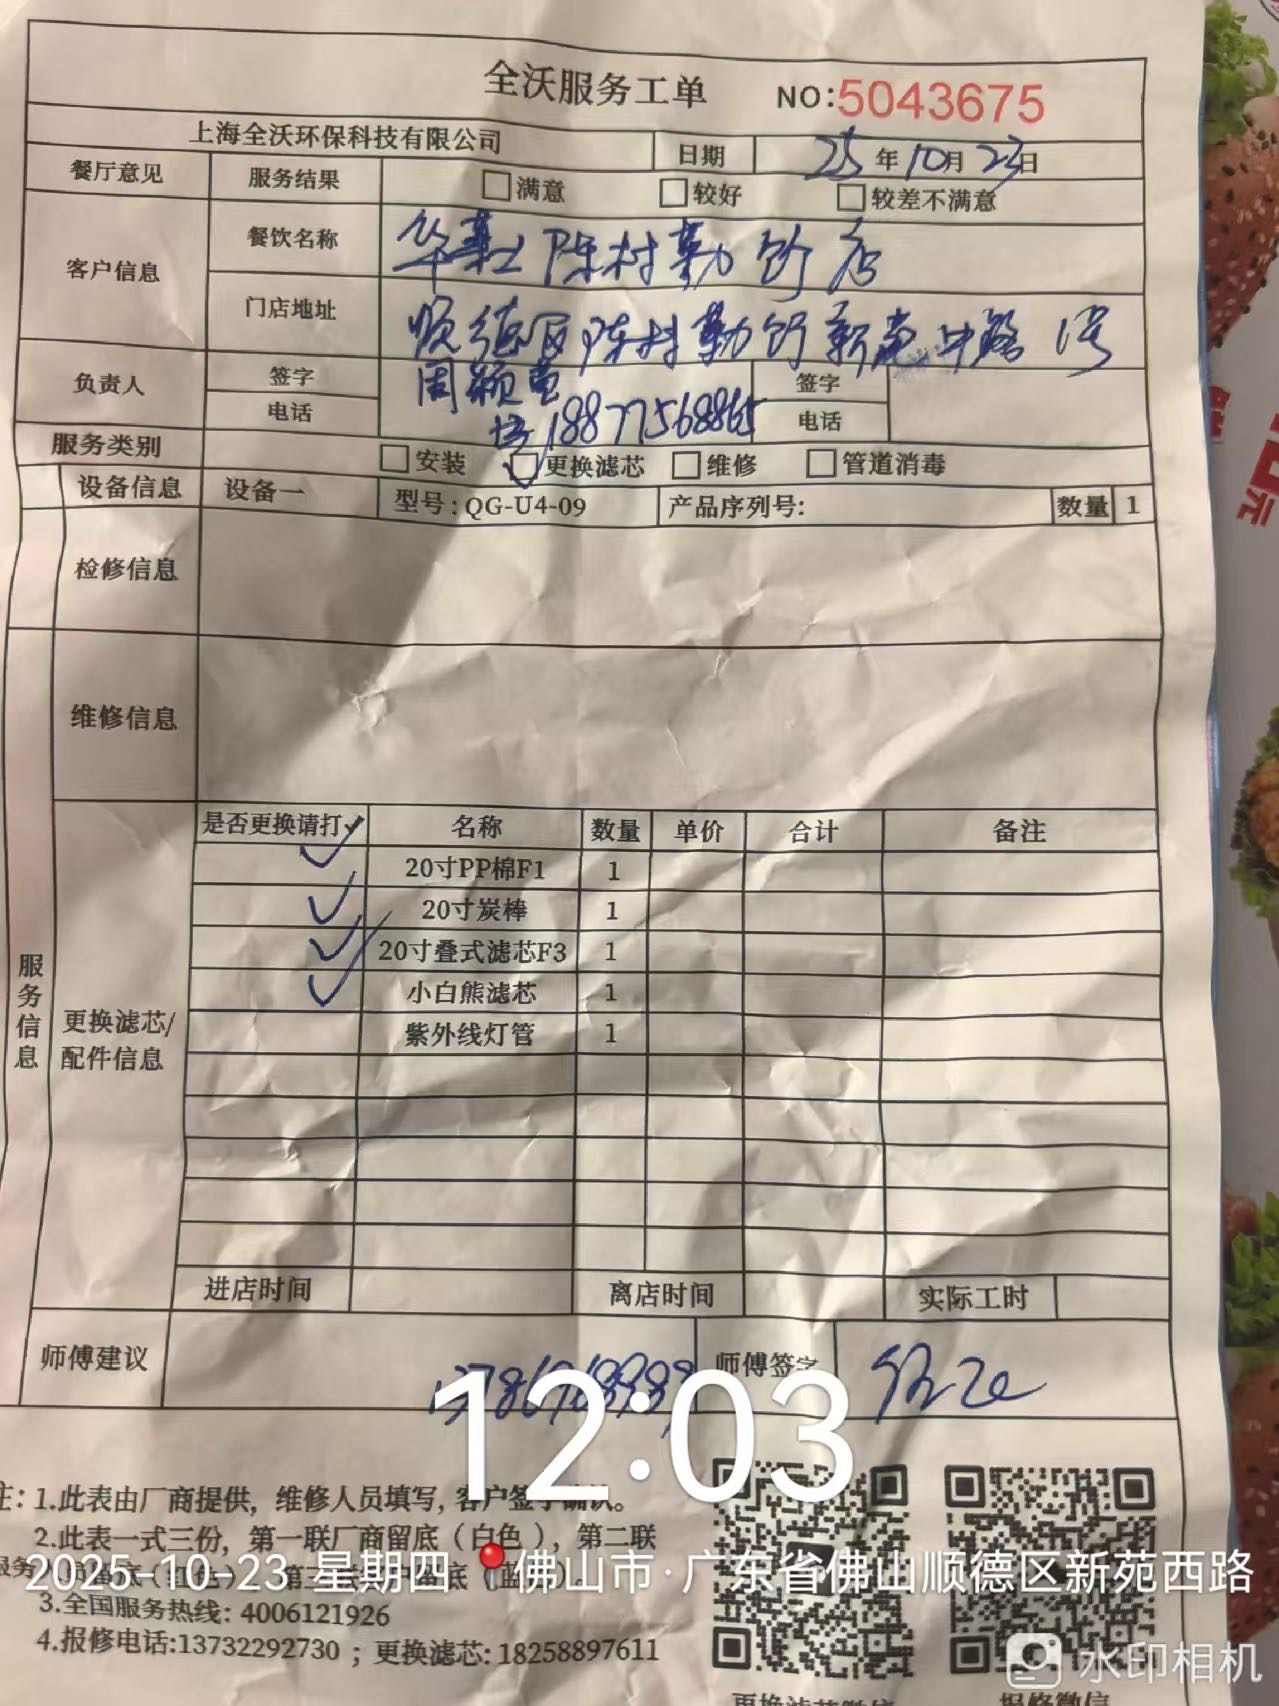 全沃服务工单 NO:5043675
上海全沃环保科技有限公司 日期 25年10月23日
餐厅意见 服务结果 □满意 □较好 □较差不满意
客户信息 餐饮名称 华莱士陈村勒竹店
门店地址 顺德区陈村勒竹新苑中路1号
负责人 签字 周颖 签字
电话 18877568865 电话
服务类别 □安装 ☑更换滤芯 □维修 □管道消毒
设备信息 设备一 型号:QG-U4-09 产品序列号: 数量 1
检修信息
维修信息
服务信息
更换滤芯/配件信息
是否更换请打✓ 名称 数量 单价 合计 备注
✓ 20寸PP棉F1 1
✓ 20寸炭棒 1
✓ 20寸叠式滤芯F3 1
✓ 小白熊滤芯 1
紫外线灯管 1
进店时间 离店时间 实际工时
师傅建议 师傅签字
12:03
注:1.此表由厂商提供,维修人员填写,客户签字确认。
2.此表一式三份,第一联厂商留底(白色),第二联
2025-10-23 星期四 佛山市·广东省佛山顺德区新苑西路
3.全国服务热线:4006121926
4.报修电话:13732292730;更换滤芯:18258897611
水印相机
更换滤芯微信 报修微信